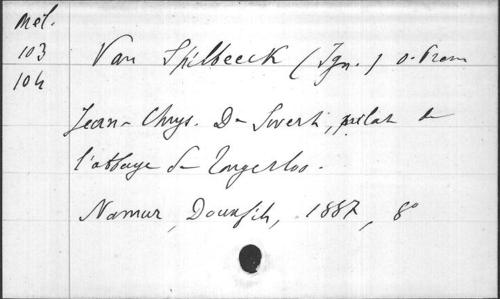 Mél.
103
104
Van Spilbeeck (Ign.) O. Prem
Jean-Chrys. De Swert, prélat de
l'abbaye de Tongerloo.
Namur, Douxfils, 1887, 8°